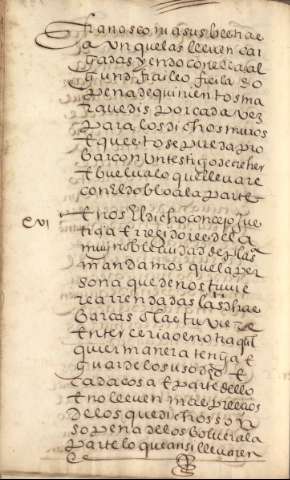 a un que las lleven car
gadas yendo con el al
gund fraile o
pena de quinientos ma
rauedis por cada vez
para los dichos muros
E que esto se pueda pro
bar con un testigo de creher
E buelua lo que lleuare
con el doblo a la parte
cvi E nos El dicho concejo Jus
tiçia E rregidores de la
muy noble ciudad de
mandamos que la per
sona que de nos tuuie
re arrendadas las dhas
barcas o la etuviere
En terceria o en otra qual
quier manera tenga E
guarde los usodho E
cada cosa E parte dello
E no lleuen mas preçios
de los que dichos son
so pena de los bolver a la
parte lo que ansi lleuaren